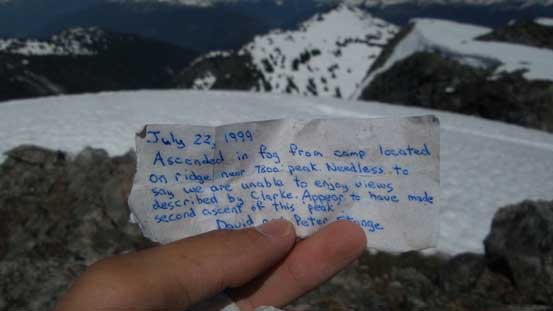 July 22, 1999
Ascended in fog from camp located
on ridge near 7800 peak. Needless to
say we are unable to enjoy views
described by Clarke. Appear to have made
second ascent of this peak.
David Peter Stange